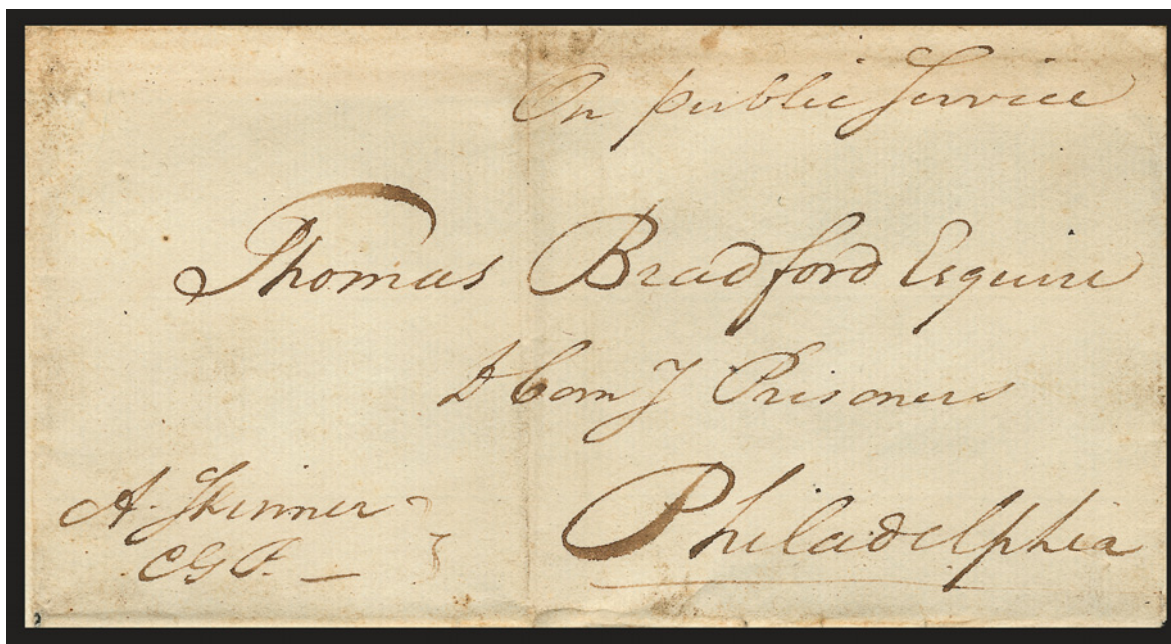 On public Service
Thomas Bradford Esquire
D Com J Prisoners
Philadelphia
A. Skinner
CGP.